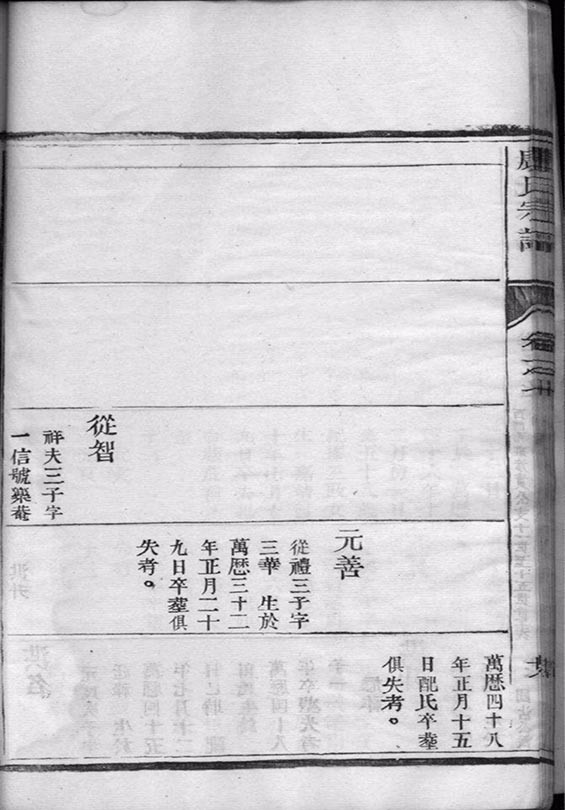 盧氏宗譜
卷之
從智
祥夫三子字
一信號樂菴
元善
從禮三子字
三華 生於
萬歴三十二
年正月二十
九日卒塟俱
失考。
萬歴四十八
年正月十五
日配氏卒塟
俱失考。